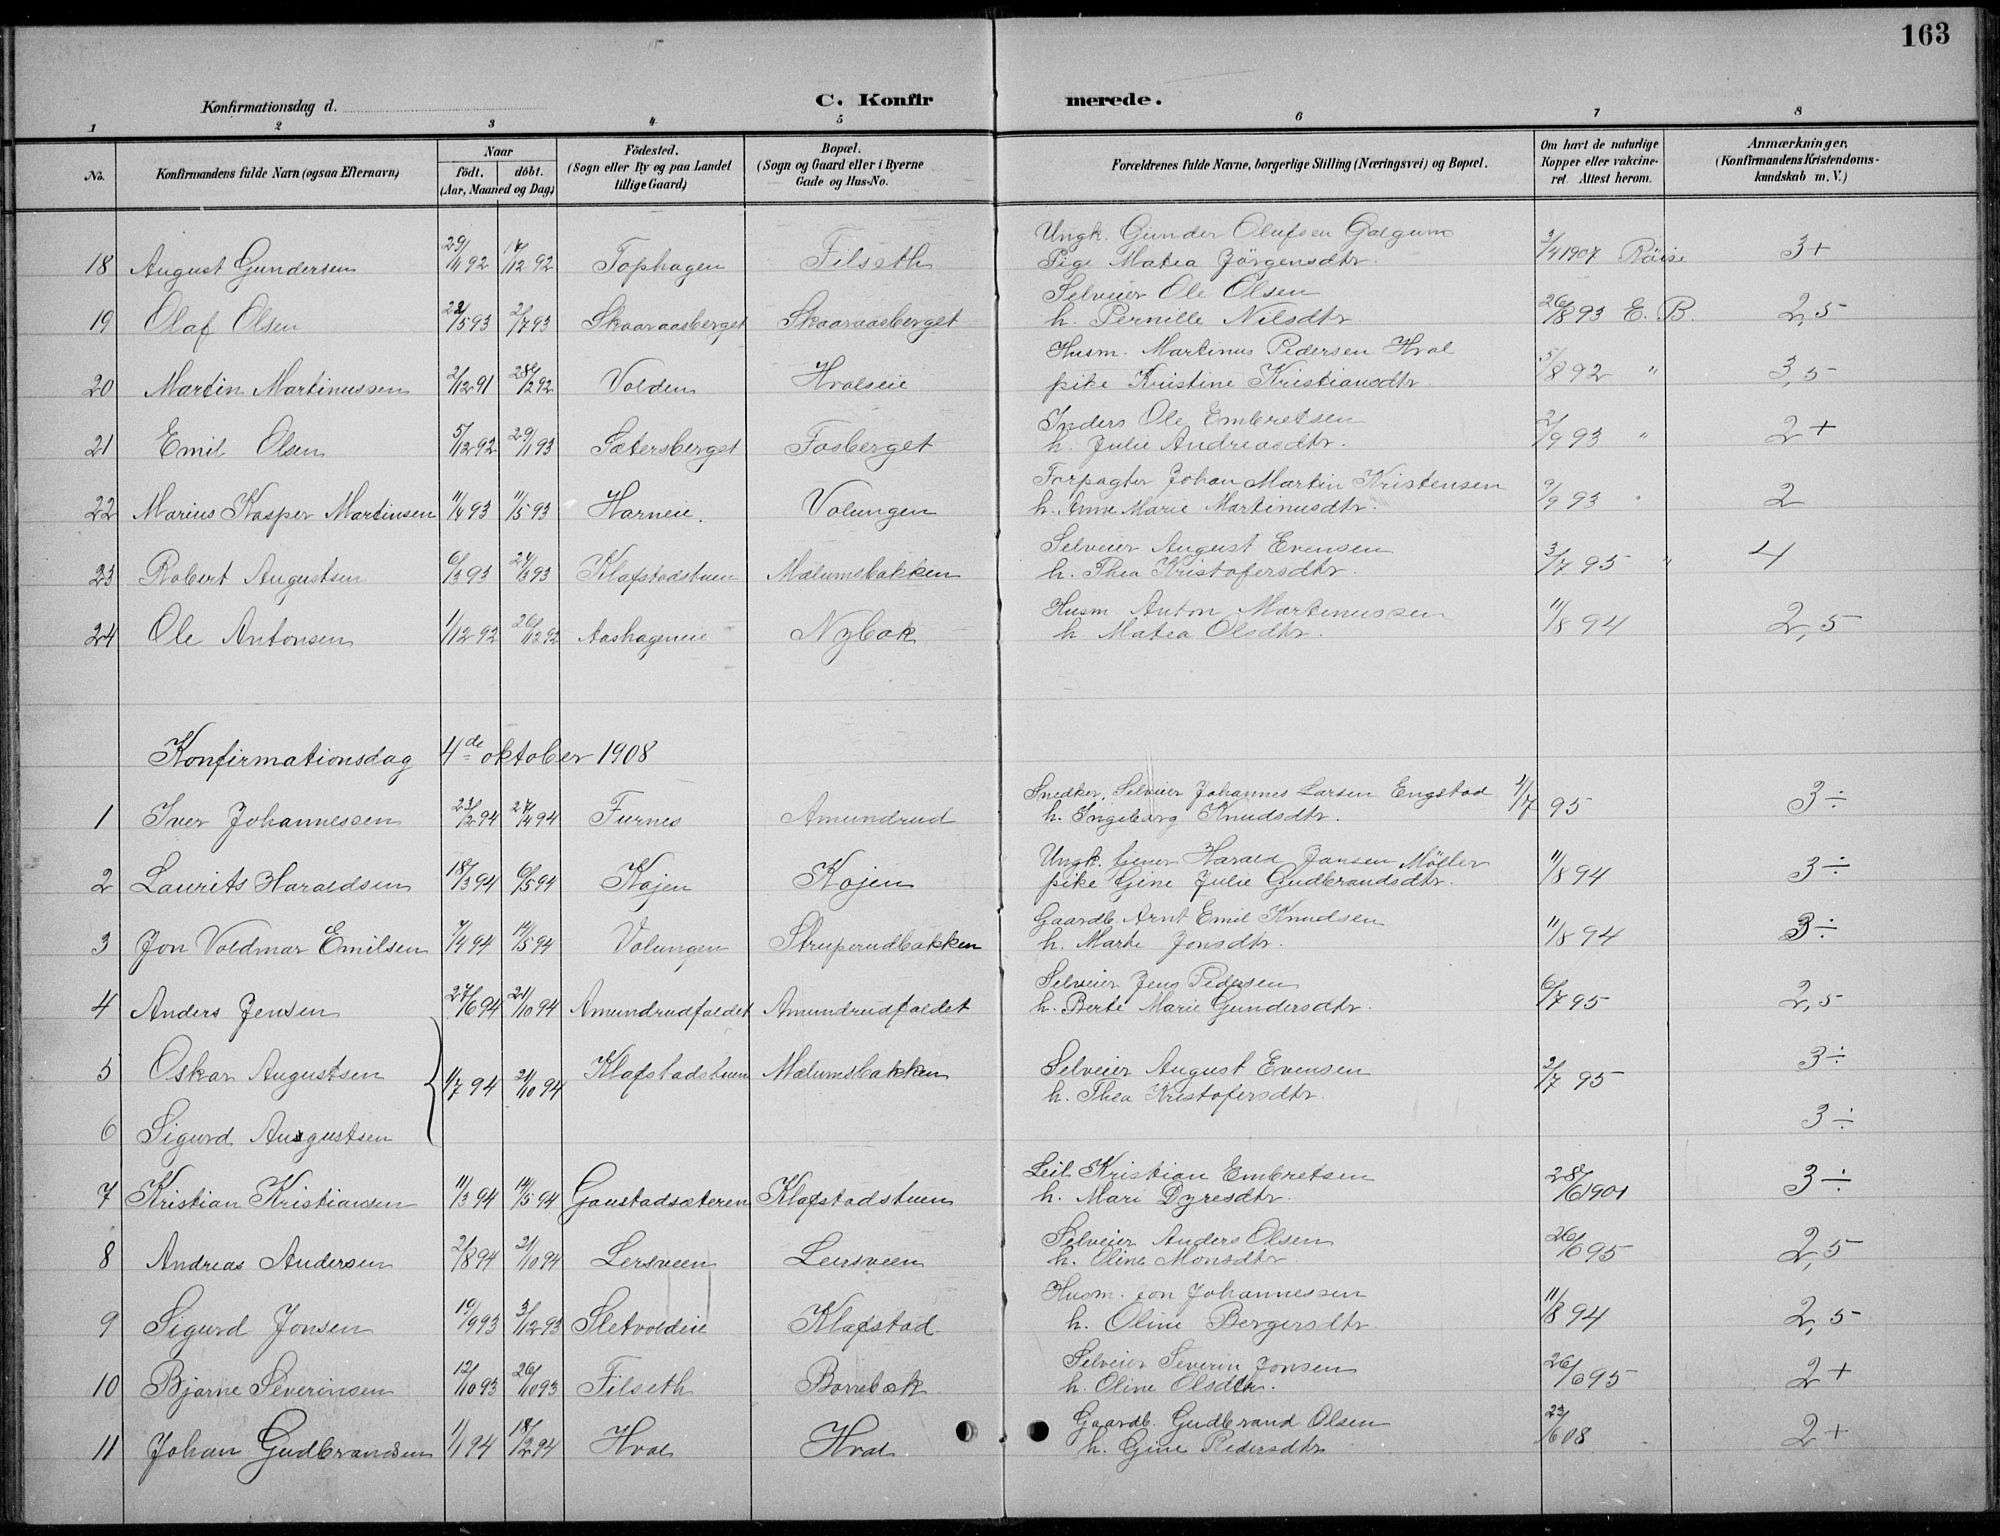 163
Konfirmationsdag d.
C. Konfirmerede.
1 2 3 4 5 6 7 8
No. Konfirmandens fulde Navn (ogsaa Efternavn) Naar födt. döbt. (Aar, Maaned og Dag) Födested. (Sogn eller By og paa Landet tillige Gaard) Bopæl. (Sogn og Gaard eller i Byerne Gade og Hus-No. Forældrenes fulde Navne, borgerlige Stilling (Næringsvei) og Bopæl. Om havt de naturlige Kopper eller vakcineret. Attest herom. Anmærkninger, (Konfirmandens Kristendomskundskab m. V.)
Ungk. Gunder Olufsen Galgum
18 August Gundersen 29/11 92 17/12 92 Tophagen Filseth Pige Matea Jörgensdtr. 3/4 1907 Röise 3+
Selveier Ole Olsen
19 Olaf Olsen 22/5 93 2/7 93 Skaaraasberget Skaaraasberget h. Pernille Nilsdtr. 26/8 93 E. B. 2,5
Husm. Martinus Pedersen Hval
20 Martin Martinussen 2/12 91 28/2 92 Volden Hvalseie pike Kristine Kristiansdtr. 5/8 92 " 3,5
Inders Ole Embretsen
21 Emil Olsen 5/12 92 29/1 93 Sætersberget Fosberget h. Julie Andreasdtr. 2/9 93 " 2+
Forpagter Johan Martin Kristensen
22 Marius Kasper Martinsen 11/4 93 11/5 93 Horneie. Volungen h. Anne Marie Martinusdtr. 9/9 93 " 2
Selveier August Evensen
23 Robert Augustsen 6/3 93 24/3 93 Klafstadstuen Mælumsbakken h. Thea Kristofersdtr. 3/7 95 " 4
Husm. Anton Martinussen
24 Ole Antonsen 1/12 92 26/12 92 Aashageneie Nybak h Matea Olsdtr. 11/8 94 2,5
Konfirmationsdag 4de oktober 1908
Snedker, Selveier Johannes Larsen Engstad
1 Iver Johannessen 23/2 94 27/4 94 Furnes Amundrud h. Ingeborg Knudsdtr. 4/7 95 3÷
Ungk. Harald Jansen Møller
2 Laurits Haraldsen 18/3 94 6/5 94 Kojen Kojen pike Gine Julie Gudbrandsdtr. 11/8 94 3÷
Gaardb. Arnt Emil Knudsen
3 Jon Voldmar Emilsen 7/4 94 14/5 94 Volungen Struperudbakken h. Marte Jonsdtr. 11/8 94 3÷
Selveier Jens Pedersen
4 Anders Jensen 27/6 94 21/10 94 Amundrudfaldet Amundrudfaldet h. Berte Marie Gundersdtr. 6/7 95 2,5
5 Oskar Augustsen 1/7 94 21/10 94 Klafstadstuen Mælumsbakken Selveier August Evensen 2/7 95 3÷
h. Thea Kristofersdtr.
6 Sigurd Augustsen 3÷
Leil. Kristian Embretsen
7 Kristian Kristiansen 11/3 94 14/5 94 Gaustadsæteren Klafstadstuen h. Mari Dyresdtr. 28/6 1901 3÷
Selveier Anders Olsen
8 Andreas Andersen 2/8 94 21/10 94 Lersveen Leirsveen h. Oline Monsdtr. 26/6 95 2,5
Husm. Jon Johannessen
9 Sigurd Jonsen 19/9 93 3/12 93 Sletvoldeie Klafstad h. Oline Bergersdtr. 11/8 94 2,5
Selveier Severin Jonsen
10 Bjarne Severinsen 12/10 93 26/10 93 Filseth Borrebæk h. Oline Olsdtr. 26/6 95 2+
Gaardb. Gudbrand Olsen
11 Johan Gudbrandsen 1/1 94 18/2 94 Hval Hval h. Gine Pedersdtr. 23/6 08 2+